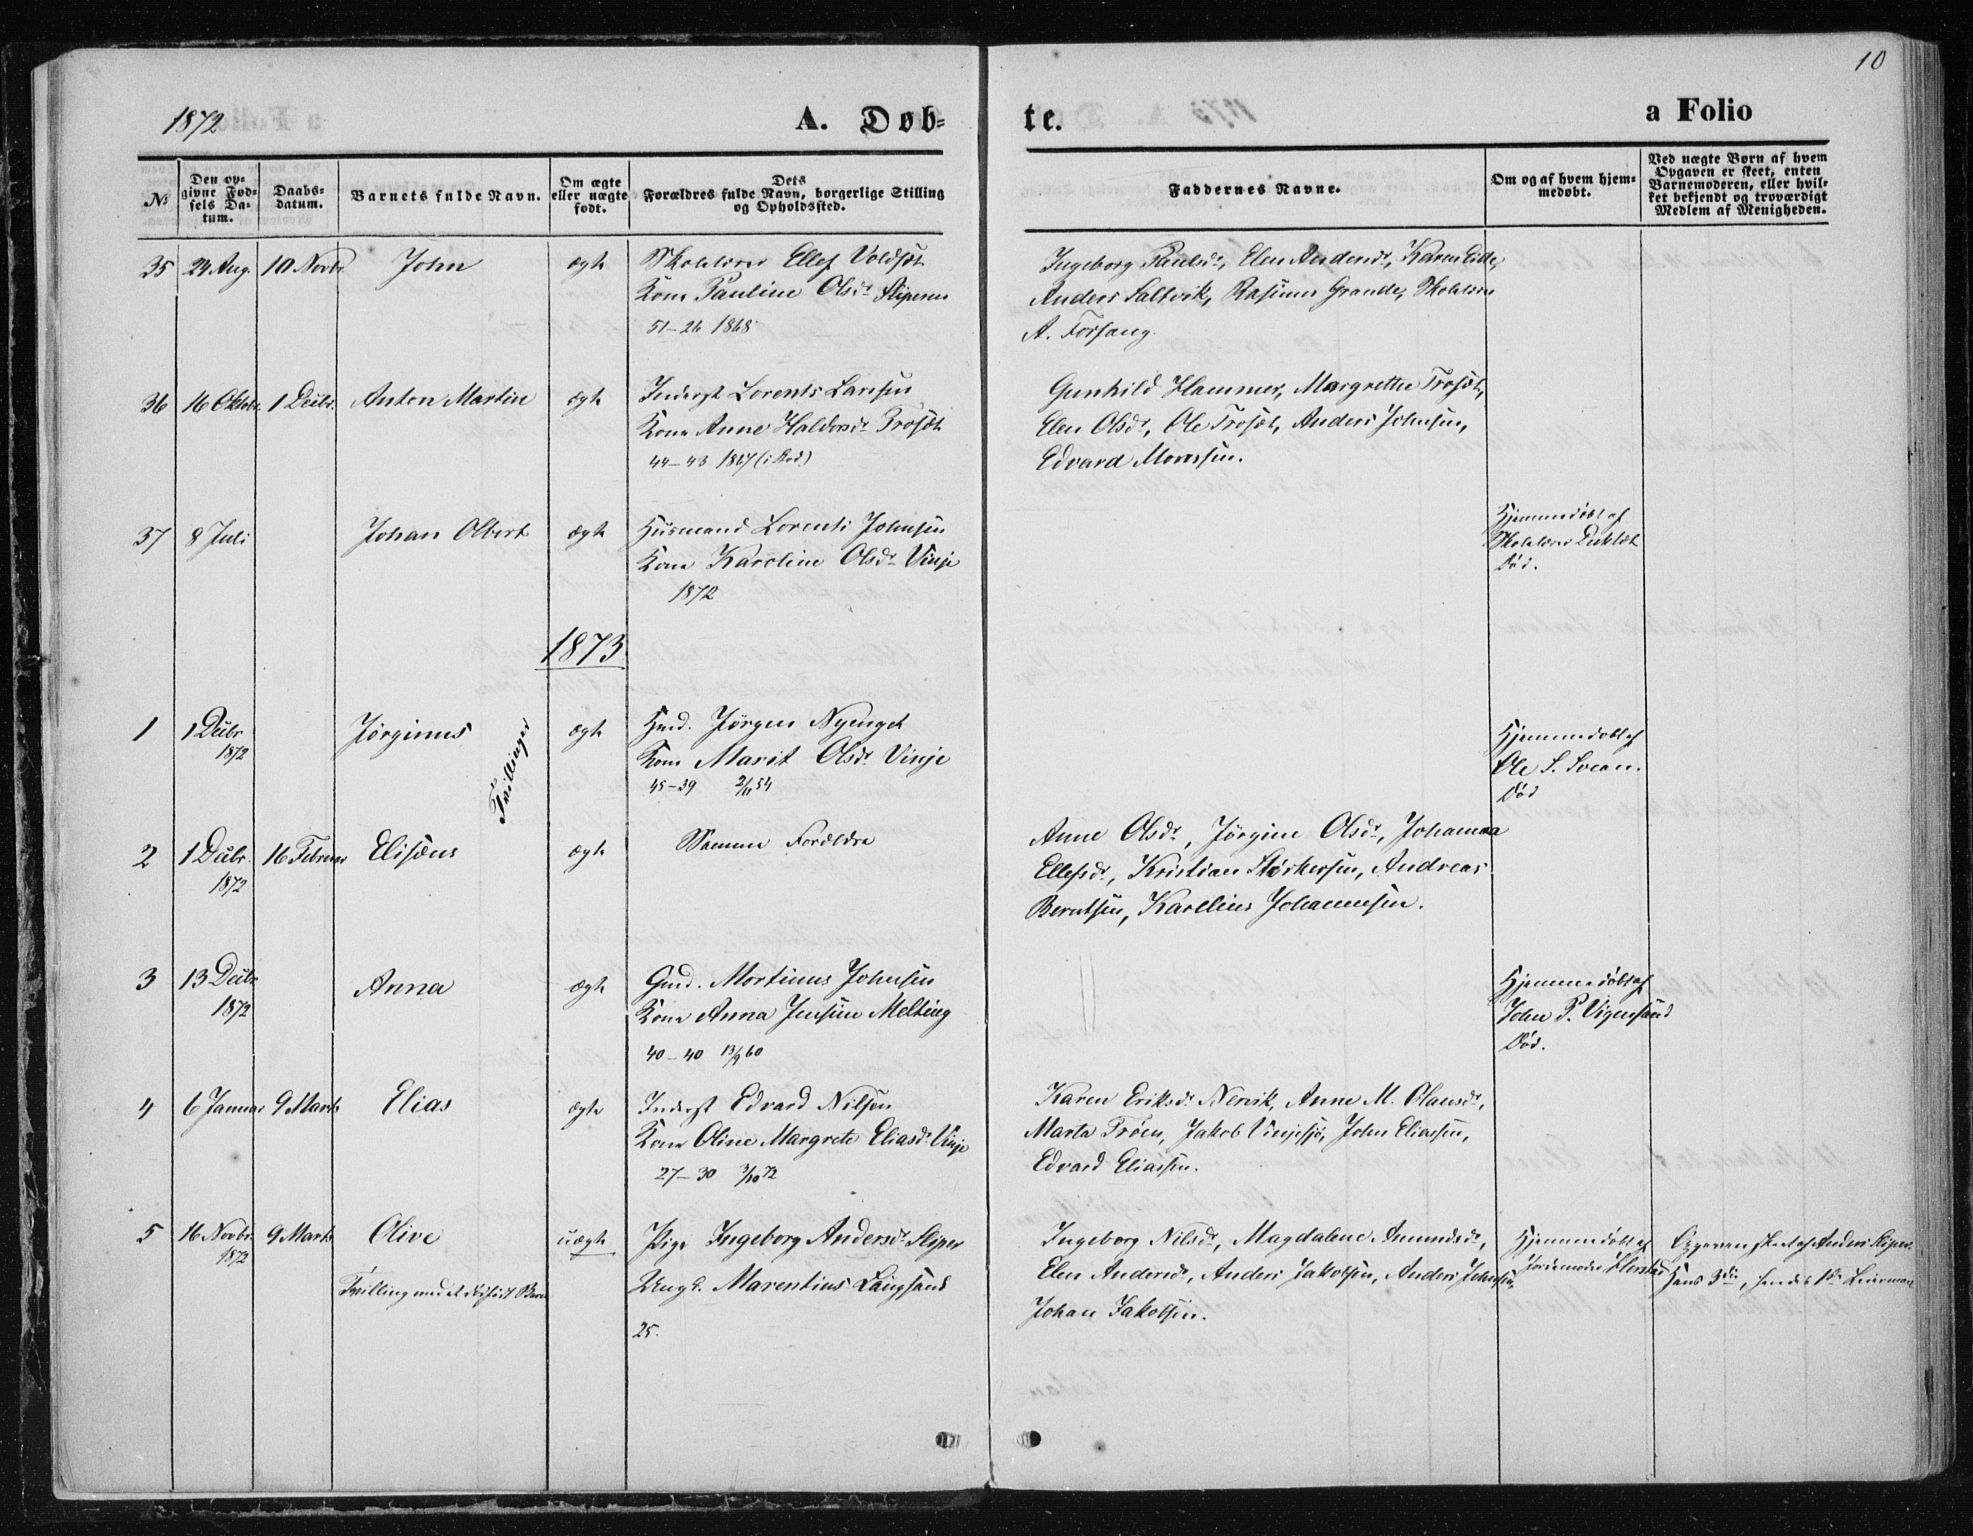 10
1872
A. Døb=
te.
a Folio
№
Den op-
givne Fød=
sels Da-
tum.
Daabs-
datum.
Barnets fulde Navn.
Om ægte
eller uægte
født.
Dets
Forældres fulde Navn, borgerlige Stilling
og Opholdssted.
Faddernes Navne.
Om og af hvem hjem=
medøbt.
Ved uægte Børn af hvem
Opgaven er skeet, enten
Barnemoderen, eller hvil=
ket bekjendt og troværdigt
Medlem af Menigheden.
35 24 Aug. 10 Novbr. John ægte Skolelærer Ellef Voldsæt
Kone Pauline Olsdr Sliperen
51-26 1868
Ingeborg Paulsdr, Elen Andersdr, Karen
Anders Saltvik, Rasmus Grande, Skolelærer
A. Forfang.
36 16 Oktobr. 1 Decbr. Anton Martin ægte Inderst Lorents Larssen
Kone Anne Haldorsdr Trøsæt
44-43 1867
Gunhild Hammer, Margrethe Trøsæt,
Elen Olsdr, Ole Trøsæt, Anders Johnsen,
Edvard
37 8 Juli Johan Olbert ægte Husmand Lorents Johnsen
Kone Karoline Olsdr Vinje
1872
Hjemmedøbt af
Skolelærer
Død.
1873
1 1 Decbr 1872 Jørginus ægte Gmd. Jørgen Nyenget
Kone Marit Olsdr Vinje
45-39 2/11 54
Tvillinger
Hjemmedøbt af
Ole S. Svean.
Død
2 1 Decbr. 1872 16 Februar Elisæus ægte Samme Forældre
Anne Olsdr, Jørgine Olsdr, Johanna
Ellefsdr, Kristian Størkersen, Andreas
Berntsen, Karelius Johannesen.
3 13 Decbr. 1872 Anna ægte Gmd. Mortinus Johnsen
Kone Anna Jensine Melting
40-40 13/9 60
Hjemmedøbt af
John P. Vigensund
Død.
4 6 Januar 9 Marts Elias ægte Inderst Edvard Nilsen
Kone Oline Margrete Eliasdr Vinje
27-30 3/10 72
Karen Eriksdr Nervik, Anne M. Olausdr,
Marta Trøen, Jakob Vinjesjø, John Eliassen,
Edvard Eliassen.
5 16 Novbr. 1872 9 Marts Olive uægte Pige Ingeborg Andersdr Sliper
Tvilling med et dødfødt Barn
Ungk. Marentius Laugsand
25.
Ingeborg Nilsdr, Magdalena Amundsdr,
Elen Andersdr, Anders Jakobsen, Anders Johnsen,
Johan Jakobsen.
Hjemmedøbt af
Jordemoder
Opgaven skeet af Anders Sliper.
Hans 3die, hendes 1ste Leiermaal